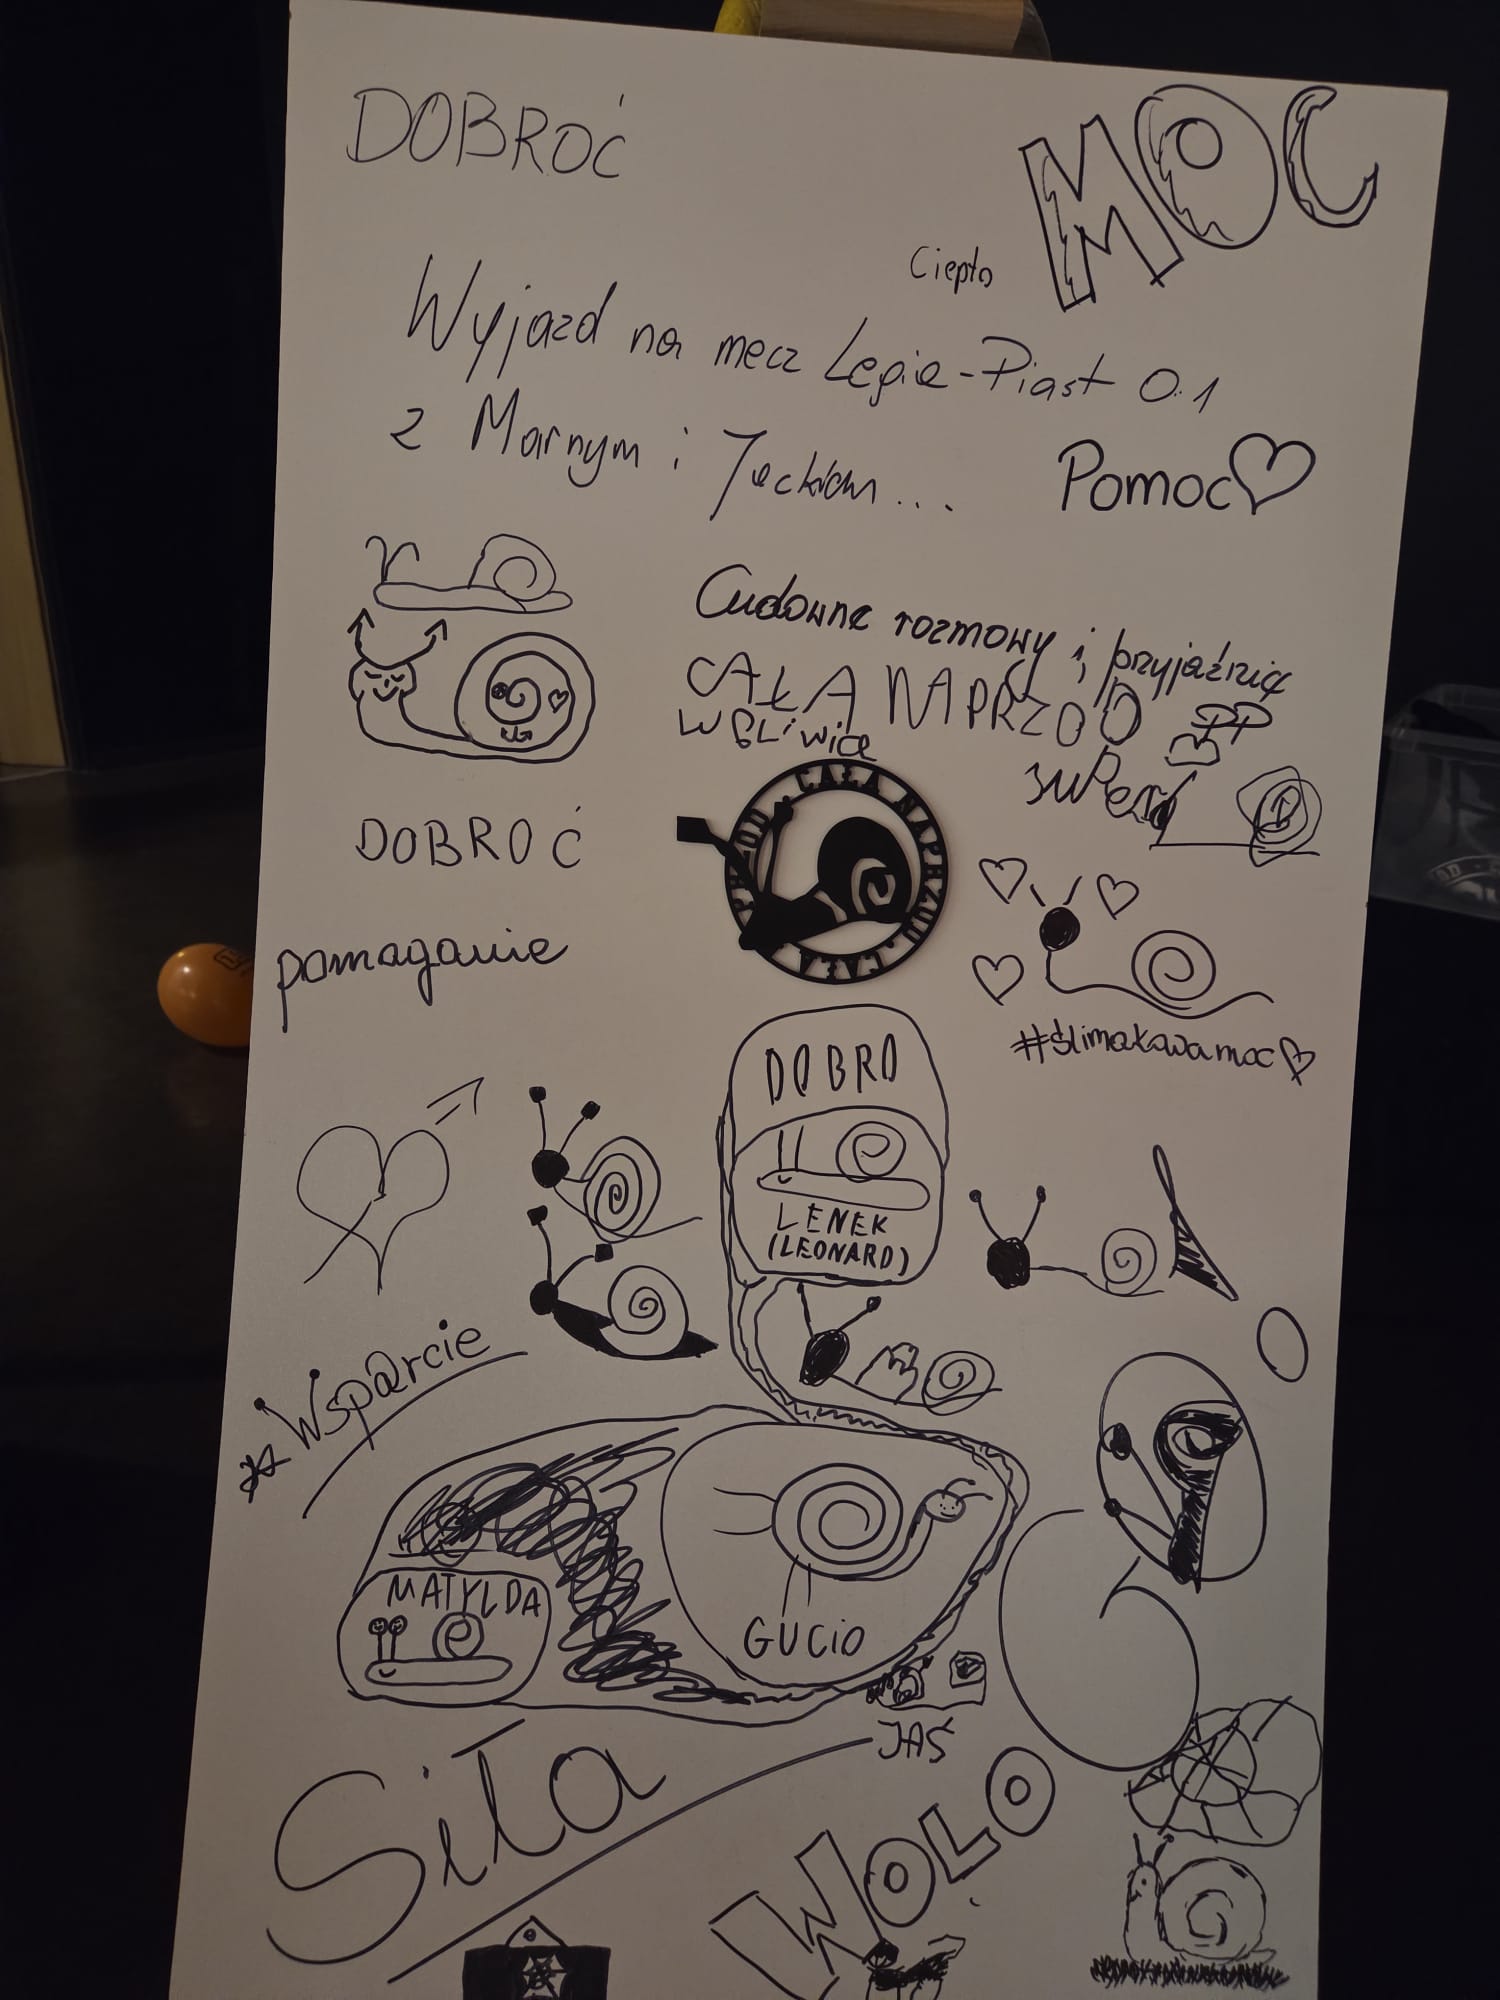 DOBROĆ
MOC
Ciepło
Wyjazd na mecz Legia-Piast 0:1
z Marnym i Jackiem...
Pomoc
Cudowne rozmowy i przyjaźnie
CAŁA NAPRZÓD
W GLiwice
super
CAŁA NAPRZÓD · CAŁA
DOBROĆ
pomaganie
#ślimakowamoc
DOBRO
LENEK
(LEONARD)
Wsparcie
MATYLDA
GUCiO
JAŚ
Siła
WOLO